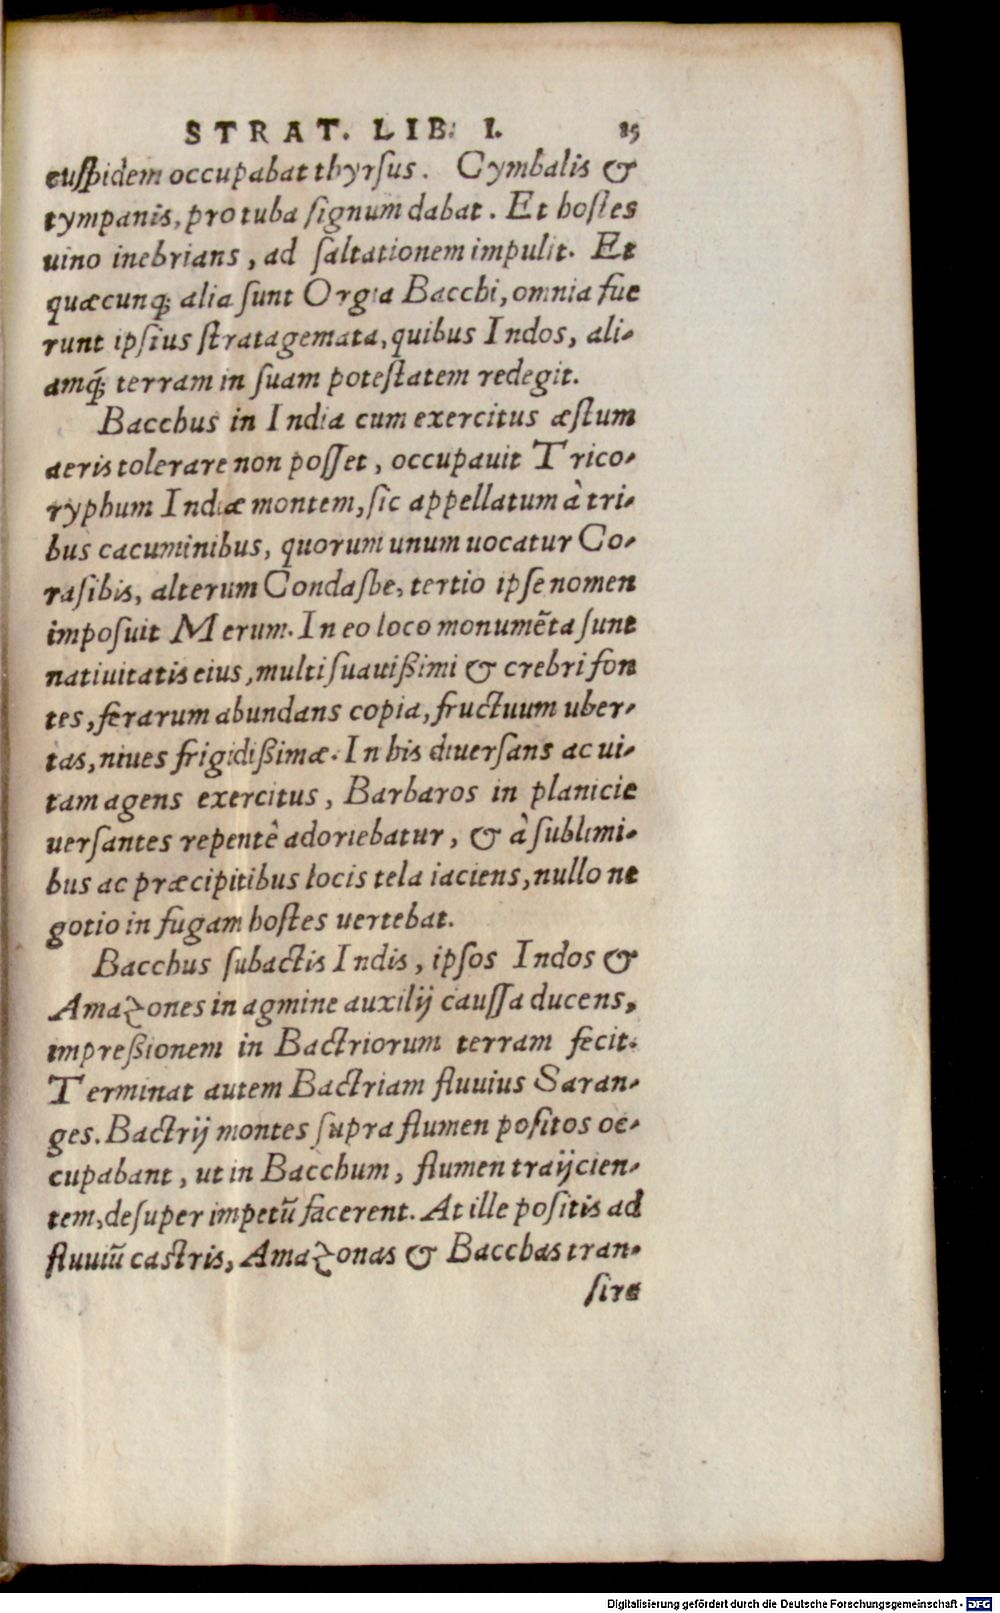 STRAT. LIB. I. 15
cuspidem occupabat thyrsus. Cymbalis &
tympanis, pro tuba signum dabat. Et hostes
uino inebrians, ad saltationem impulit. Et
quæcunq; alia sunt Orgia Bacchi, omnia fue
runt ipsius stratagemata, quibus Indos, ali-
amq́; terram in suam potestatem redegit.
Bacchus in India cum exercitus æstum
aeris tolerare non posset, occupauit Trico-
ryphum Indiæ montem, sic appellatum à tri-
bus cacuminibus, quorum unum uocatur Co-
rasibis, alterum Condasbe, tertio ipse nomen
imposuit Merum. In eo loco monumẽta sunt
natiuitatis eius, multi suauißimi & crebri fon
tes, ferarum abundans copia, fructuum uber-
tas, niues frigidißimæ. In his diuersans ac ui-
tam agens exercitus, Barbaros in planicie
uersantes repentè adoriebatur, & à sublimi-
bus ac præcipitibus locis tela iaciens, nullo ne
gotio in fugam hostes uertebat.
Bacchus subactis Indis, ipsos Indos &
Amazones in agmine auxilij caussa ducens,
impreßionem in Bactriorum terram fecit.
Terminat autem Bactriam fluuius Saran-
ges. Bactrij montes supra flumen positos oc-
cupabant, ut in Bacchum, flumen traijcien-
tem, desuper impetũ facerent. At ille positis ad
fluuiũ castris, Amazonas & Bacchas tran-
sire
Digitalisierung gefördert durch die Deutsche Forschungsgemeinschaft - DFG